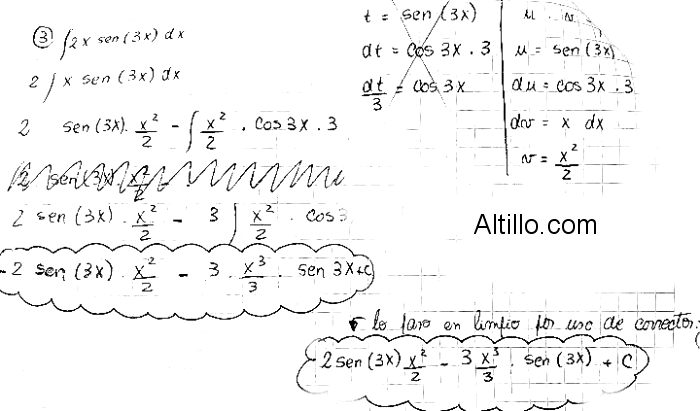 ③ ∫2x sen(3x) dx
2 ∫ x sen(3x) dx
2 sen(3x) · x²/2 − ∫ x²/2 · cos 3x · 3
2 sen(3x) x²/2 −
2 sen(3x) · x²/2 − 3 ∫ x²/2 · cos 3
- 2 sen(3x) · x²/2 − 3 · x³/3 · sen 3x + C
t = sen(3x)
dt = cos 3x · 3
dt/3 = cos 3x
u · v
u = sen(3x)
du = cos 3x · 3
dv = x dx
v = x²/2
Altillo.com
lo paso en limpio por uso de corrector:
2 sen(3x) x²/2 − 3 x³/3 · sen(3x) + C